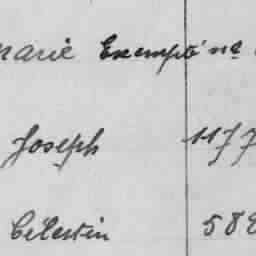 Marie Exempté na
Joseph 1177
Célestin 588